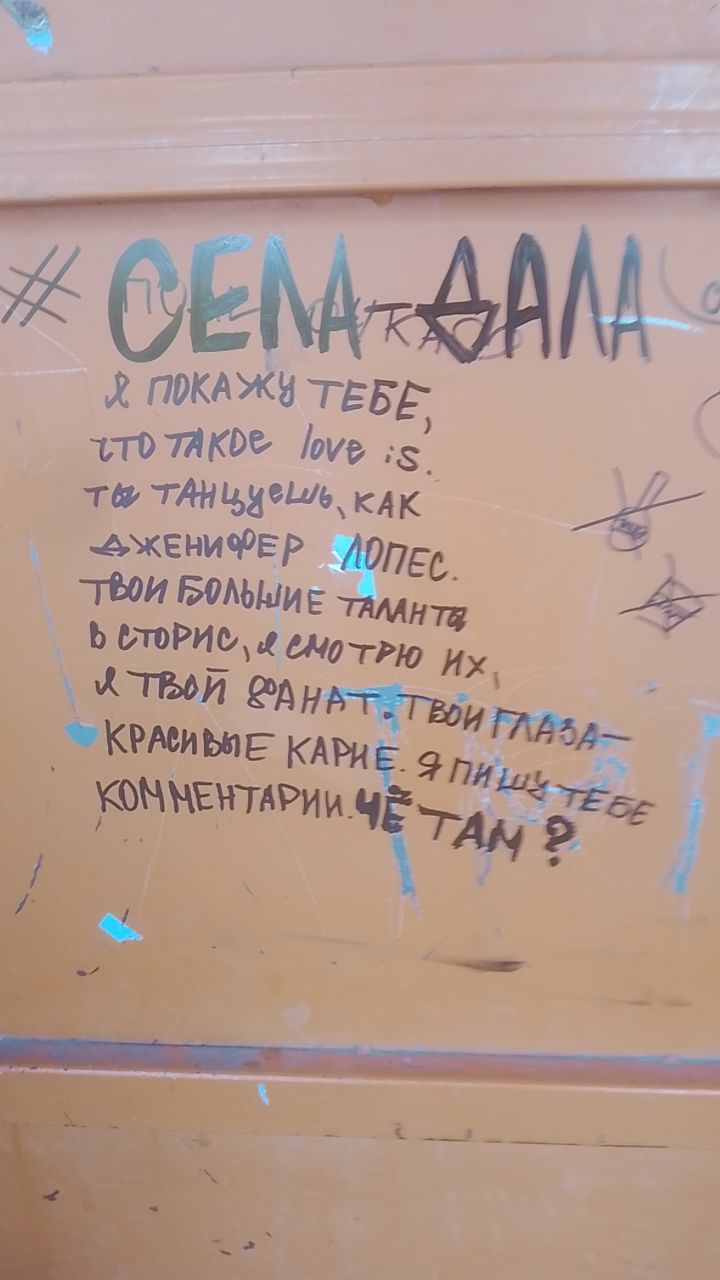 # СЕЛА ДАЛА
Я ПОКАЖУ ТЕБЕ,
ЧТО ТАКОЕ love is.
ТЫ ТАНЦУЕШЬ, КАК
ДЖЕНИФЕР ЛОПЕС.
ТВОИ БОЛЬШИЕ ТАЛАНТЫ
В СТОРИС, Я СМОТРЮ ИХ,
Я ТВОЙ ФАНАТ. ТВОИ ГЛАЗА—
КРАСИВЫЕ КАРИЕ. Я ПИШУ ТЕБЕ
КОММЕНТАРИИ. ЧЁ ТАМ?